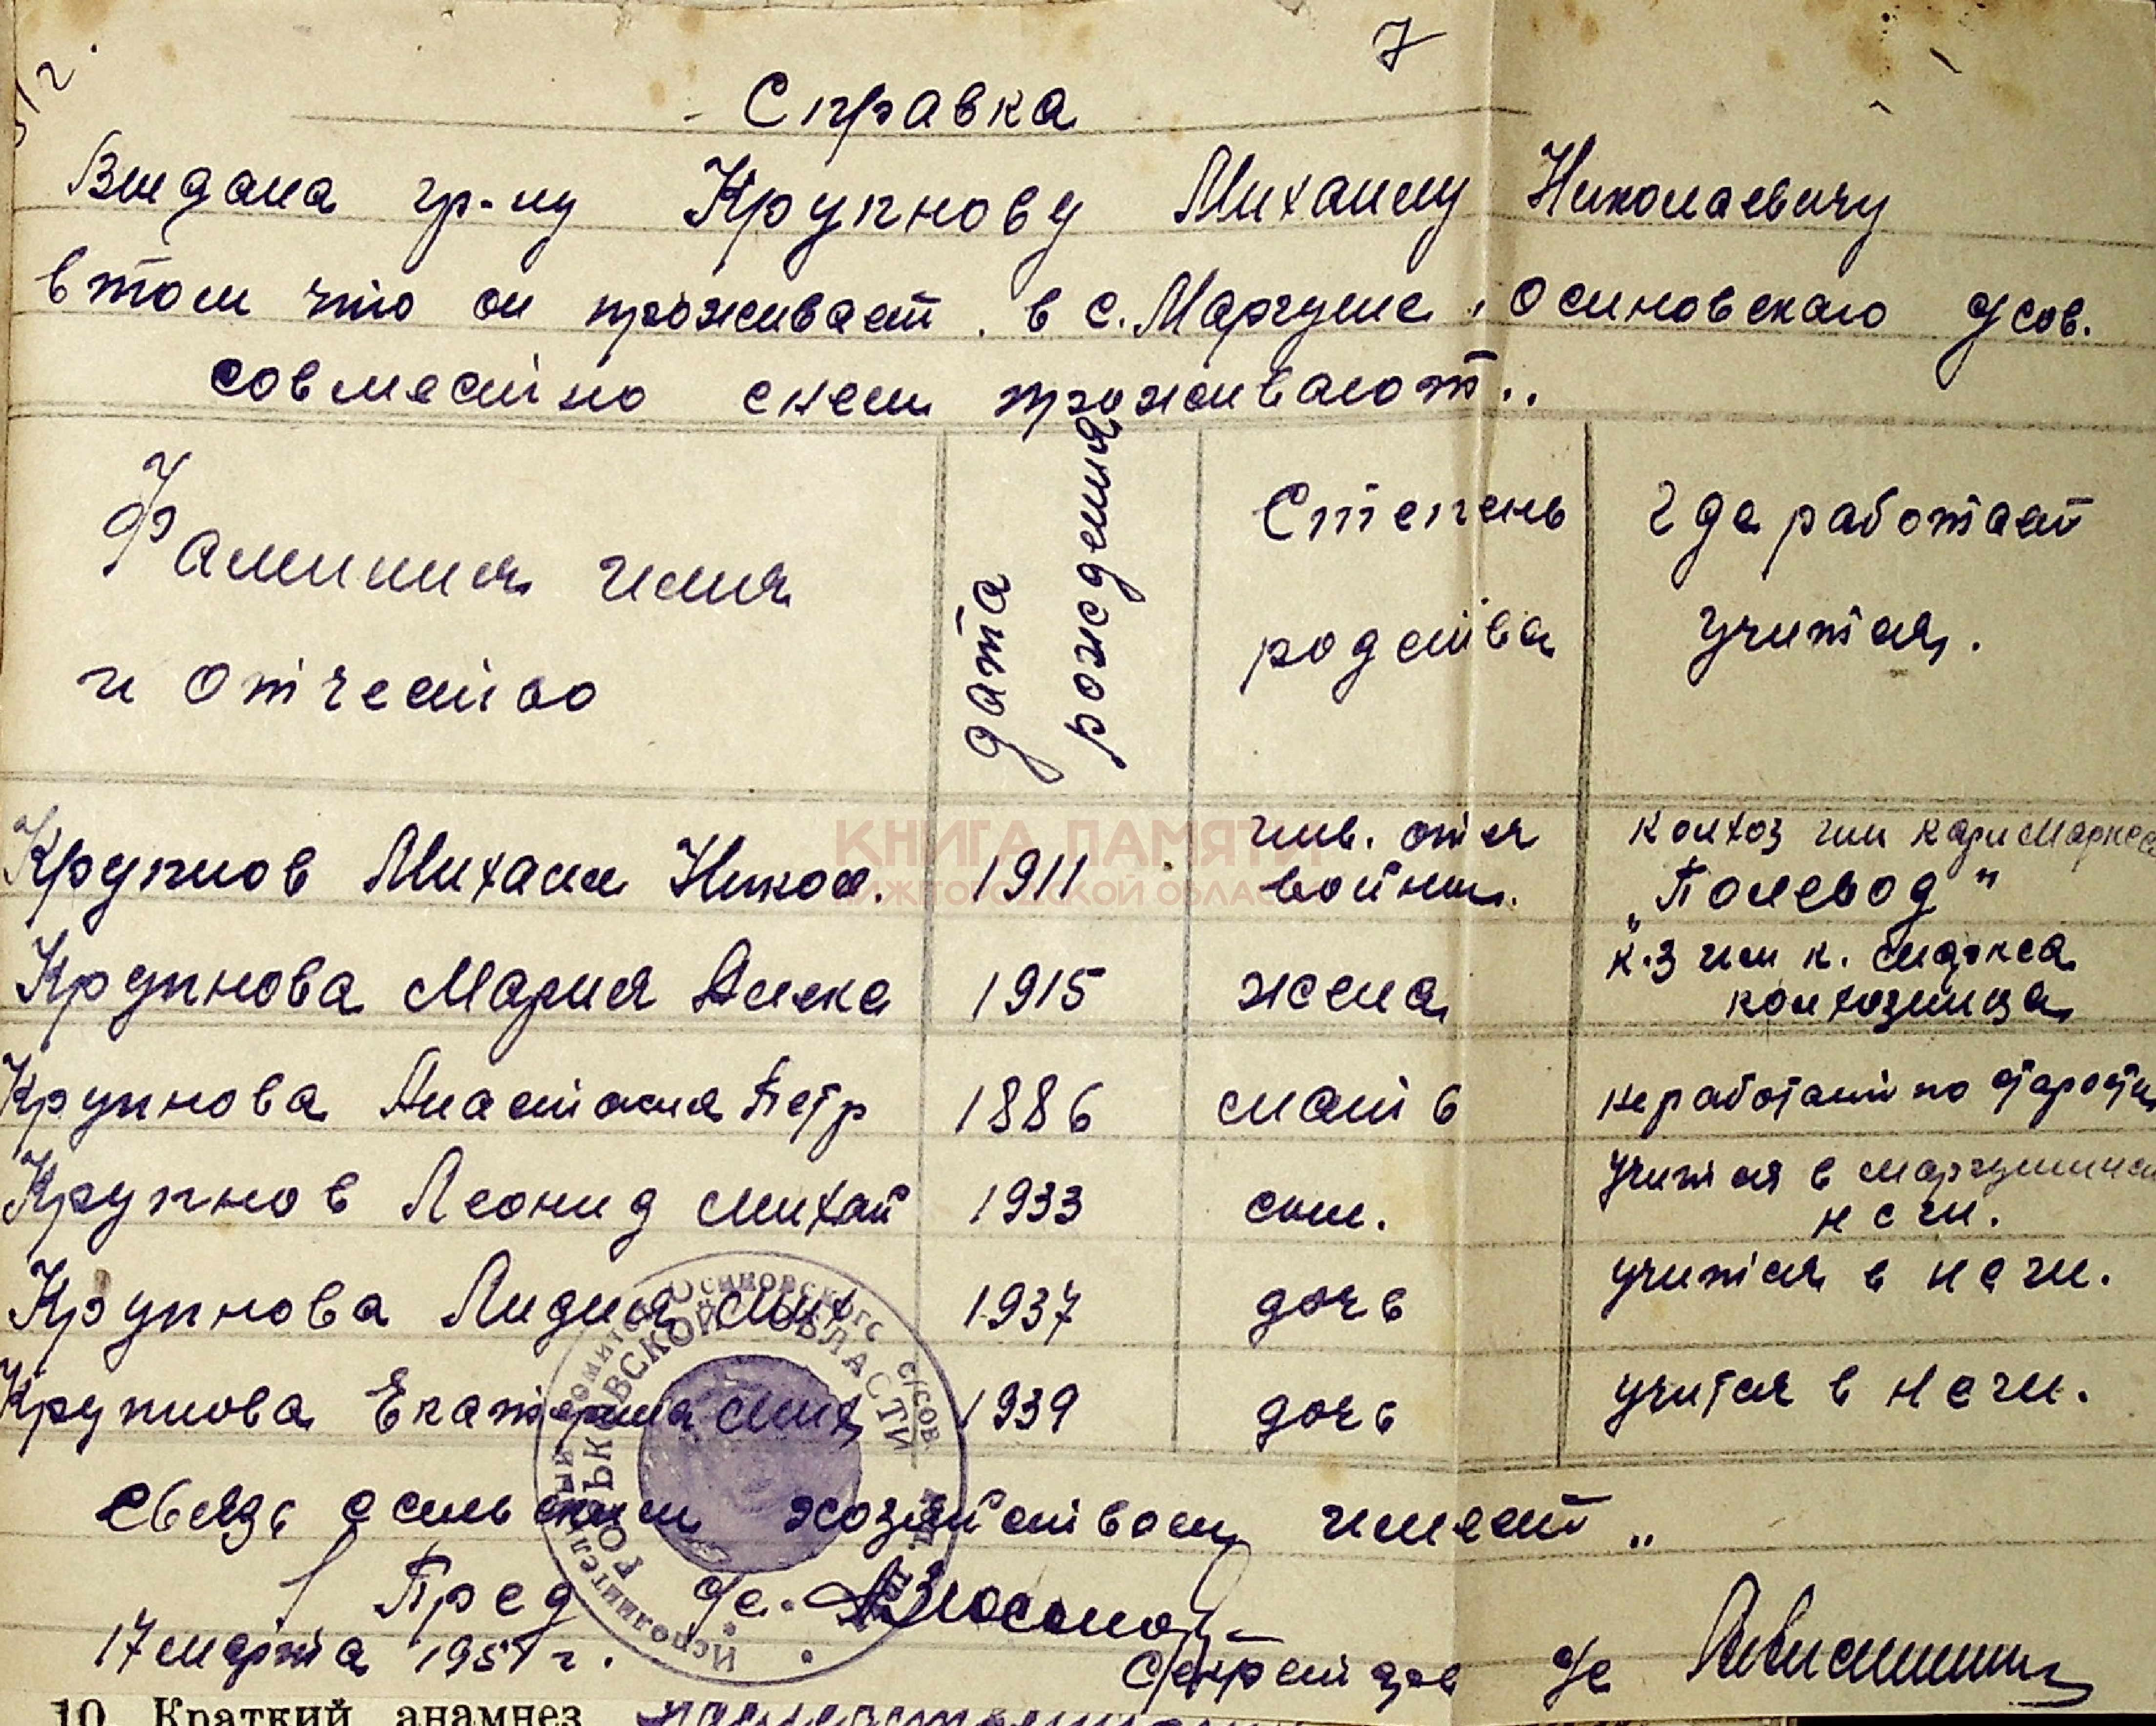 7
Справка
Выдана гр-ну Крупнову Михаилу Николаевичу
в том что он проживает в с. Маргуше, Осиновского с/сов.
совместно снем проживают..
Фамилия имя
и отчество
дата
рождения
Степень
родства
где работает
учится.
КНИГА ПАМЯТИ
НИЖЕГОРОДСКОЙ ОБЛАСТИ
Крупнов Михаил Никол. 1911 инв. отеч войны. колхоз им Карл Маркса „Полевод"
Крупнова Мария Алекс 1915 жена к-з им К. Маркса колхозница
Крупнова Анастасия Петр 1886 мать не работает по старости
Крупнов Леонид Михай 1933 сын. учится в
н с ш.
Крупнова Лидия Мих 1937 дочь учится в н с ш.
Крупнова Екатерина Мих 1939 дочь учится в н с ш.
Исполнительный комитет Осиновского с/сов.
ГОРЬКОВСКОЙ ОБЛАСТИ
связь сельским хозяйством имеет „
Пред с/с.
17 марта 1951 г.
Секретарь с/с
10. Краткий анамнез